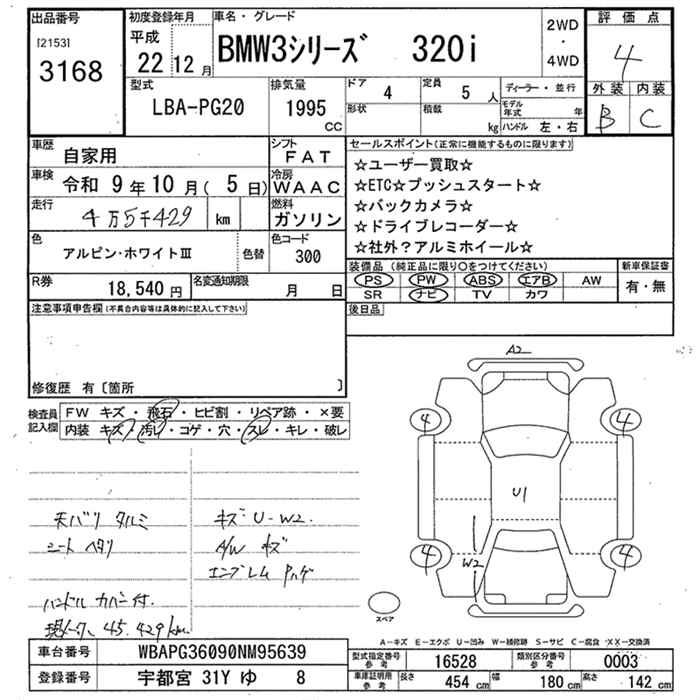 出品番号
[2153]
3168
初度登録年月
平成
22 12月
車名・グレード
BMW3シリーズ 320i
2WD
・
4WD
評価点
4
外装 内装
B C
型式
LBA-PG20
排気量
1995
CC
ドア
4
定員
5 人
形状
積載
kg
ディーラー・並行
モデル年式 年
ハンドル 左・右
車歴
自家用
シフト
FAT
車検
令和 9年10月(5日)
冷房
WAAC
走行
4万5千429 km
燃料
ガソリン
色
アルピン・ホワイトIII
色替
色コード
300
R券
18,540円
名変通知期限
月 日
セールスポイント(正常に機能するものに限ります)
☆ユーザー買取☆
☆ETC☆プッシュスタート☆
☆バックカメラ☆
☆ドライブレコーダー☆
☆社外?アルミホイール☆
装備品 (純正品に限り○をつけてください)
PS PW ABS エアB AW
SR ナビ TV カワ
新車保証書
有・無
後日品
注意事項申告欄(不具合内容等は具体的に記入して下さい)
修復歴 有〔箇所 〕
検査員
記入欄
FW キズ・飛石・ヒビ割・リペア跡・×要
内装 キズ・汚レ・コゲ・穴・スレ・キレ・破レ
天バリ タルミ
シート ヘタリ
ハンドル カバー付.
現メーター 45.429km
キズ U-W2.
A/W キズ
エンブレム ハゲ
A2
4
4
U1
W2
4
4
スペア
A-キズ E-エクボ U-凹み W-補修跡 S-サビ C-腐食 XX-交換済
車台番号
WBAPG36090NM95639
登録番号
宇都宮 31Y ゆ 8
型式指定番号
参考
16528
類別区分番号
参考
0003
車庫証明用
参考
長さ
454 cm
幅
180 cm
高さ
142 cm